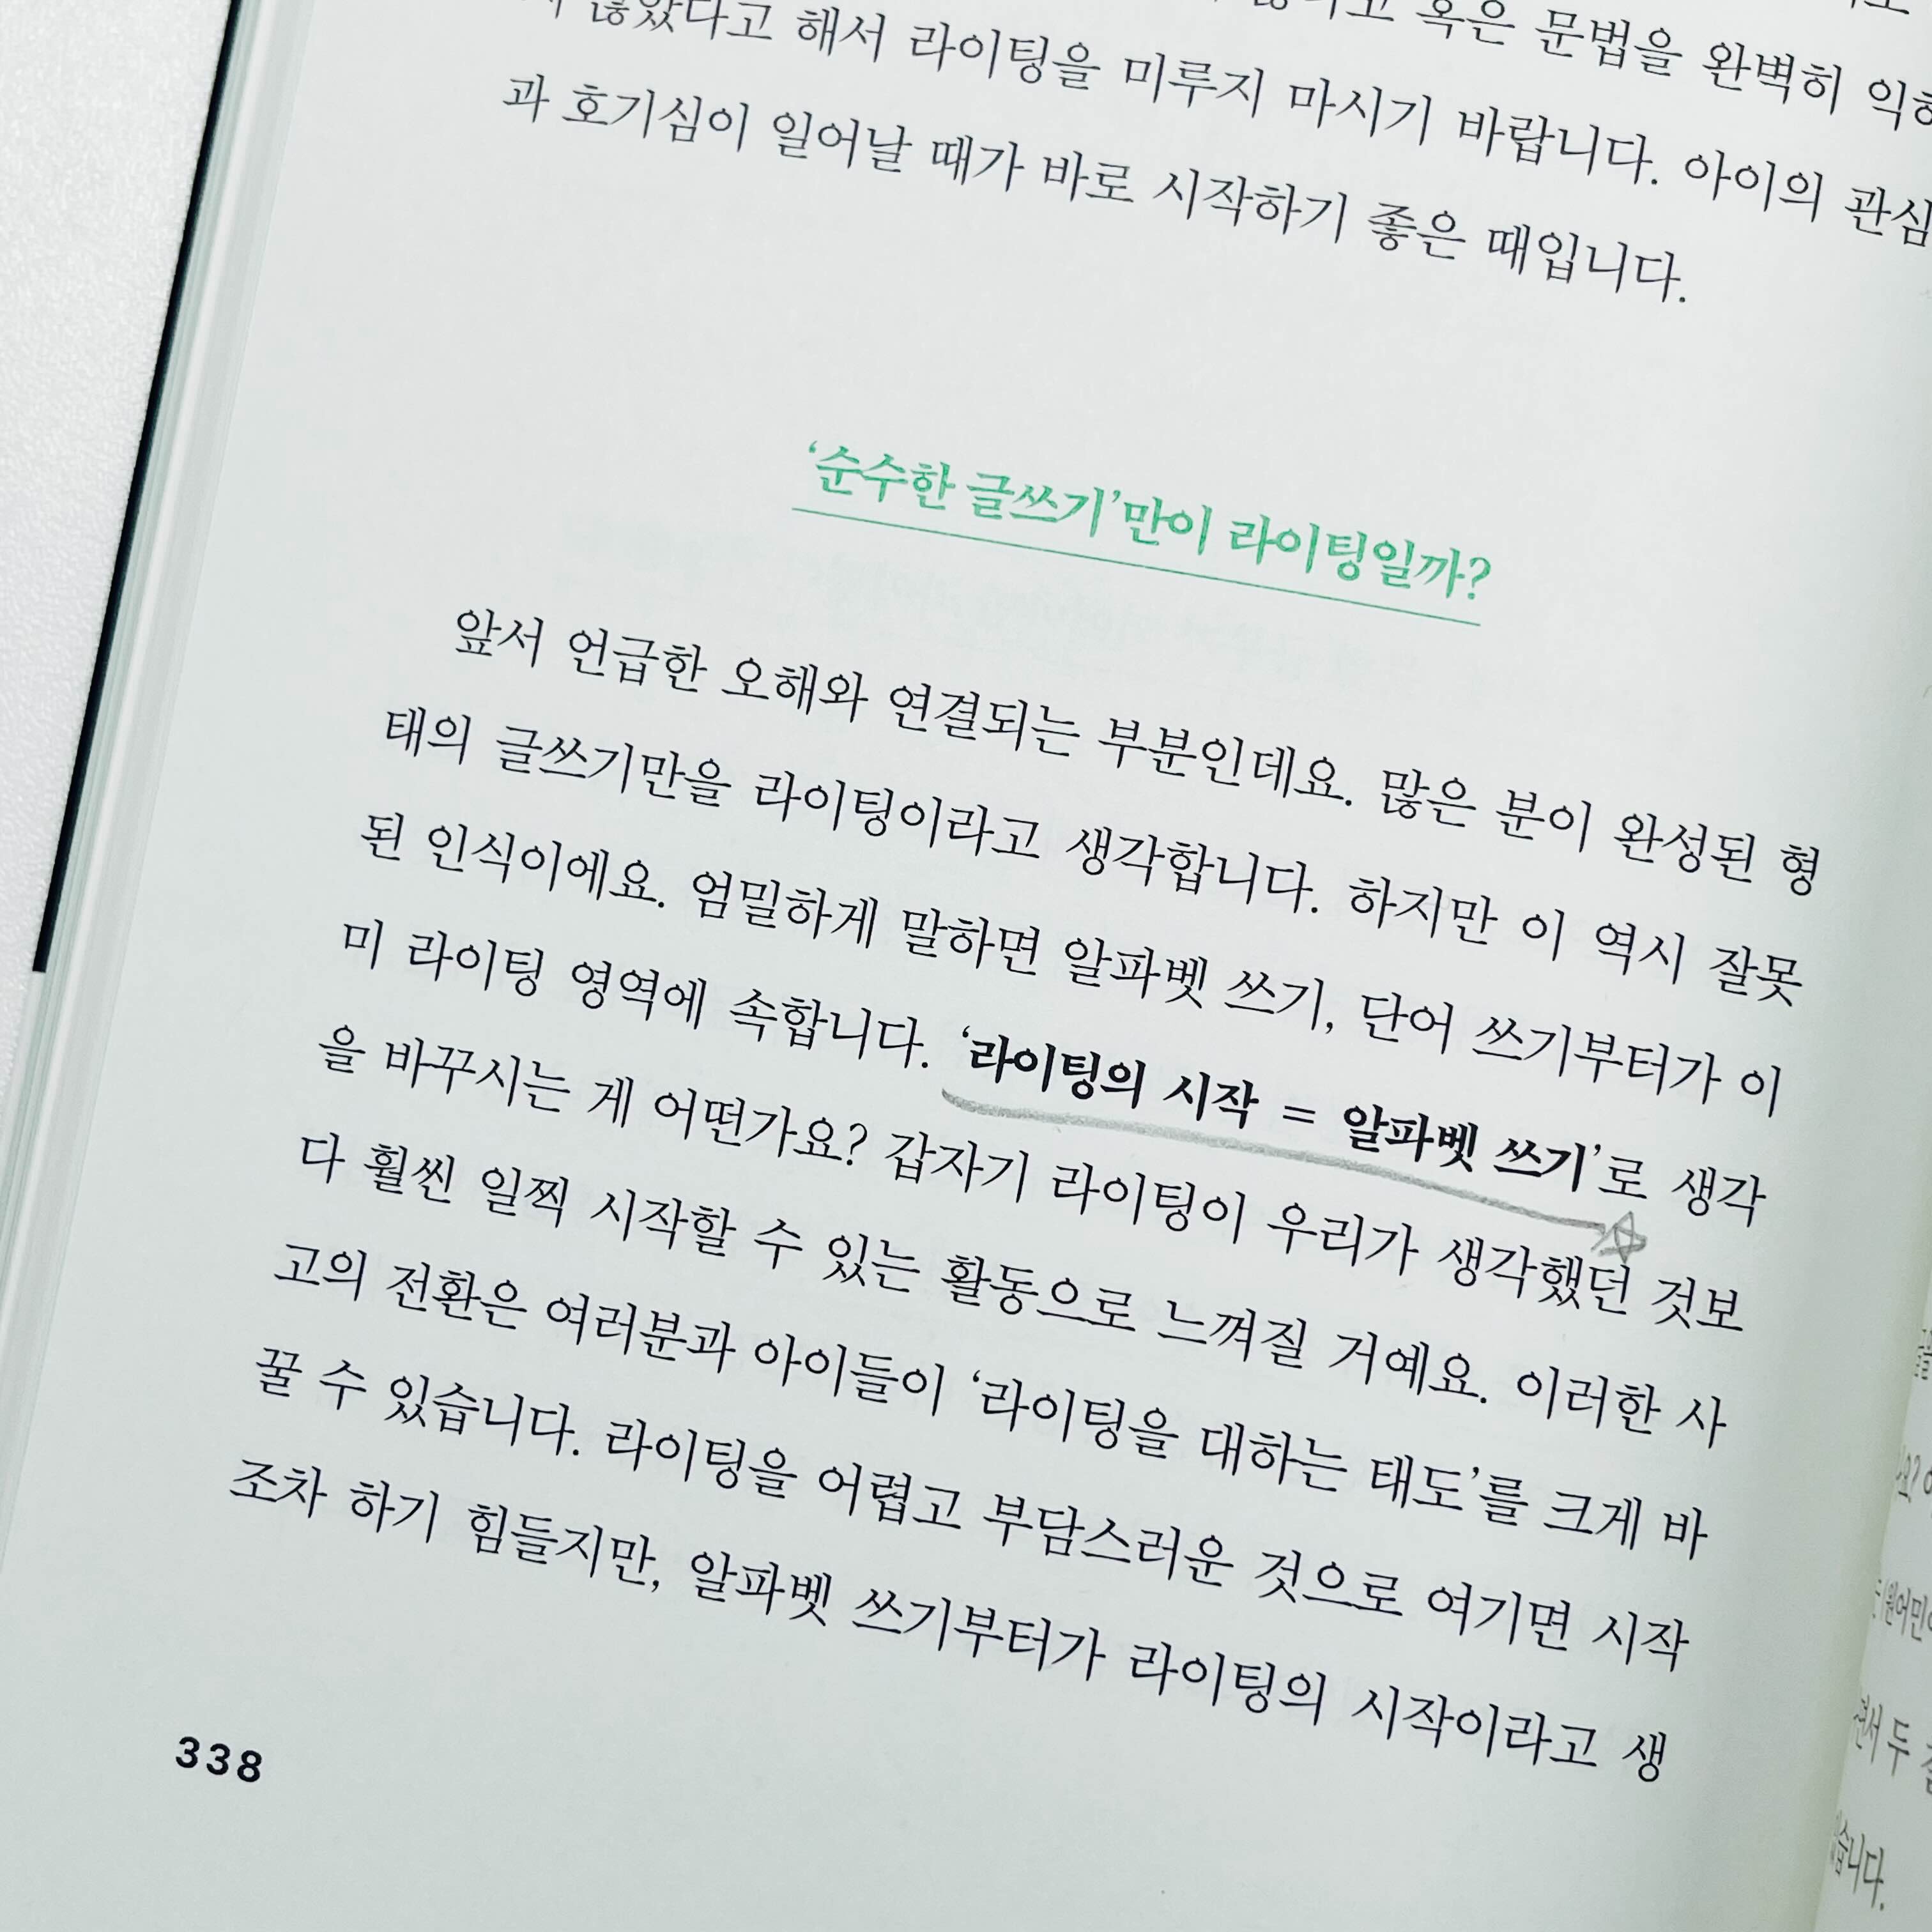 않았다고 해서 라이팅을 미루지 마시기 바랍니다. 아이의 관심
혹은 문법을 완벽히
과 호기심이 일어날 때가 바로 시작하기 좋은 때입니다.
‘순수한 글쓰기’만이 라이팅일까?
앞서 언급한 오해와 연결되는 부분인데요. 많은 분이 완성된 형
태의 글쓰기만을 라이팅이라고 생각합니다. 하지만 이 역시 잘못
된 인식이에요. 엄밀하게 말하면 알파벳 쓰기, 단어 쓰기부터가 이
미 라이팅 영역에 속합니다. ‘라이팅의 시작 = 알파벳 쓰기’로 생각
을 바꾸시는 게 어떤가요? 갑자기 라이팅이 우리가 생각했던 것보
다 훨씬 일찍 시작할 수 있는 활동으로 느껴질 거예요. 이러한 사
고의 전환은 여러분과 아이들이 ‘라이팅을 대하는 태도’를 크게 바
꿀 수 있습니다. 라이팅을 어렵고 부담스러운 것으로 여기면 시작
조차 하기 힘들지만, 알파벳 쓰기부터가 라이팅의 시작이라고 생
338